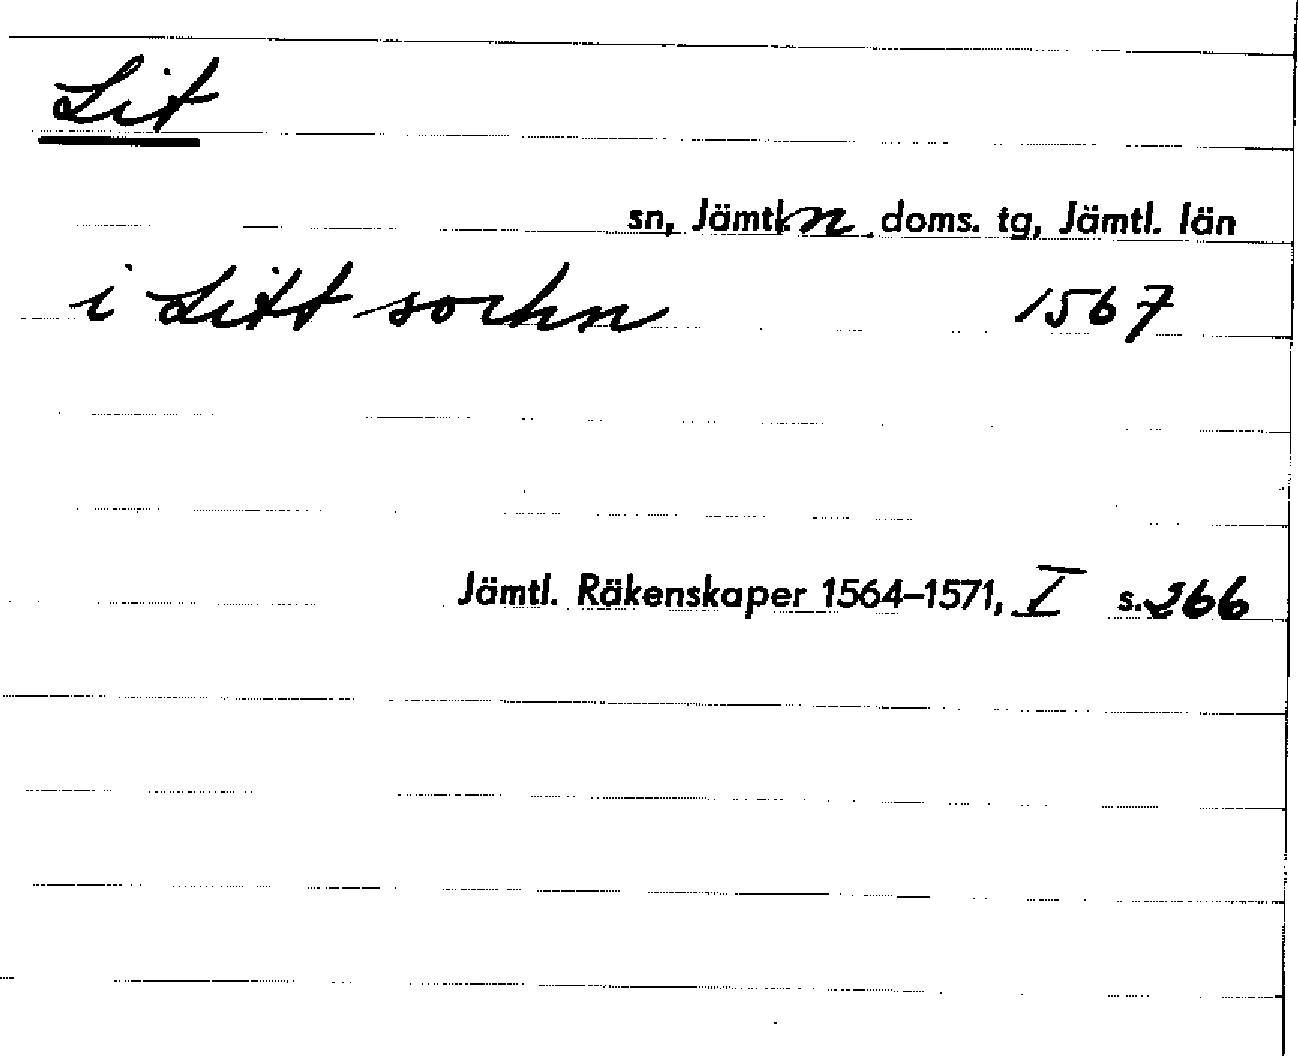 Lit
sn, Jämtl. n doms. tg, Jämtl. län
i Litt sochn 1567
Jämtl. Räkenskaper 1564–1571, I s. 266